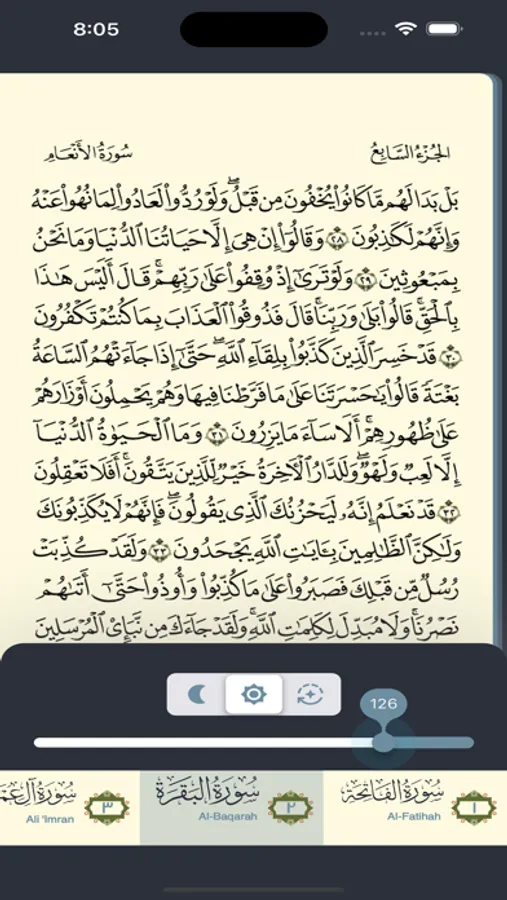 8:05
الجزء السابع
سورة الأنعام
بَلْ بَدَا لَهُم مَّا كَانُوا۟ يُخْفُونَ مِن قَبْلُ ۖ وَلَوْ رُدُّوا۟ لَعَادُوا۟ لِمَا نُهُوا۟ عَنْهُ
وَإِنَّهُمْ لَكَٰذِبُونَ ٢٨ وَقَالُوٓا۟ إِنْ هِىَ إِلَّا حَيَاتُنَا ٱلدُّنْيَا وَمَا نَحْنُ
بِمَبْعُوثِينَ ٢٩ وَلَوْ تَرَىٰٓ إِذْ وُقِفُوا۟ عَلَىٰ رَبِّهِمْ ۚ قَالَ أَلَيْسَ هَٰذَا
بِٱلْحَقِّ ۚ قَالُوا۟ بَلَىٰ وَرَبِّنَا ۚ قَالَ فَذُوقُوا۟ ٱلْعَذَابَ بِمَا كُنتُمْ تَكْفُرُونَ
٣٠ قَدْ خَسِرَ ٱلَّذِينَ كَذَّبُوا۟ بِلِقَآءِ ٱللَّهِ ۖ حَتَّىٰٓ إِذَا جَآءَتْهُمُ ٱلسَّاعَةُ
بَغْتَةً قَالُوا۟ يَٰحَسْرَتَنَا عَلَىٰ مَا فَرَّطْنَا فِيهَا وَهُمْ يَحْمِلُونَ أَوْزَارَهُمْ
عَلَىٰ ظُهُورِهِمْ ۚ أَلَا سَآءَ مَا يَزِرُونَ ٣١ وَمَا ٱلْحَيَوٰةُ ٱلدُّنْيَآ
إِلَّا لَعِبٌ وَلَهْوٌ ۖ وَلَلدَّارُ ٱلْءَاخِرَةُ خَيْرٌ لِّلَّذِينَ يَتَّقُونَ ۗ أَفَلَا تَعْقِلُونَ
٣٢ قَدْ نَعْلَمُ إِنَّهُۥ لَيَحْزُنُكَ ٱلَّذِى يَقُولُونَ ۖ فَإِنَّهُمْ لَا يُكَذِّبُونَكَ
وَلَٰكِنَّ ٱلظَّٰلِمِينَ بِـَٔايَٰتِ ٱللَّهِ يَجْحَدُونَ ٣٣ وَلَقَدْ كُذِّبَتْ
رُسُلٌ مِّن قَبْلِكَ فَصَبَرُوا۟ عَلَىٰ مَا كُذِّبُوا۟ وَأُوذُوا۟ حَتَّىٰٓ أَتَىٰهُمْ
نَصْرُنَا ۚ وَلَا مُبَدِّلَ لِكَلِمَٰتِ ٱللَّهِ ۚ وَلَقَدْ جَآءَكَ مِن نَّبَإِى۟ ٱلْمُرْسَلِينَ
126
سورة الفاتحة ١
Al-Fatihah
سورة البقرة ٢
Al-Baqarah
سورة آل عمـ ٣
Ali 'Imran